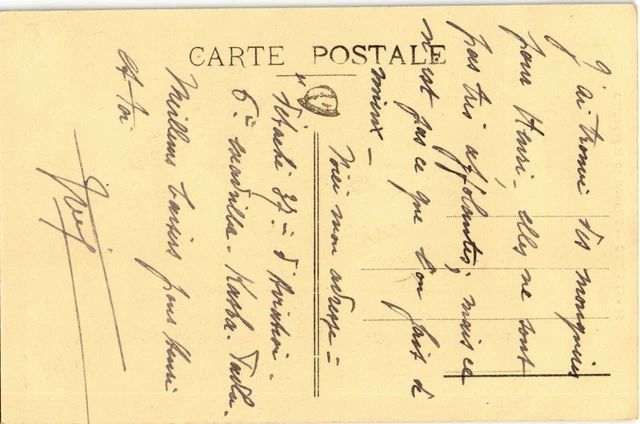 CARTE POSTALE
J'ai trouvé des mauresques
pour Henri, elles ne sont
pas très affolantes, mais ce
n'est pas ce que l'on fait de
mieux -
Voici mon adresse -
Détaché 37e d'Aviation -
6e escadrille - Kasba-Tadla.
Meilleurs baisers pour Henri
et toi